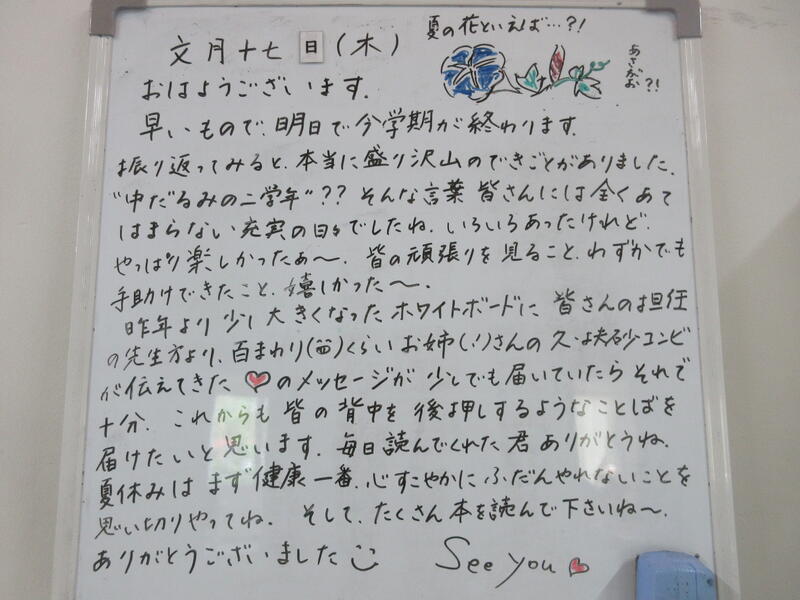 文月十七日(木)
夏の花といえば…?!
あさがお?!
おはようございます.
早いもので、明日で今学期が終わります.
振り返ってみると、本当に盛り沢山のできごとがありました.
"中だるみの二学年"?? そんな言葉 皆さんには全くあて
はまらない充実の日々でしたね. いろいろあったけれど.
やっぱり楽しかったぁ〜. 皆の頑張りを見ること、わずかでも
手助けできたこと、嬉しかった〜.
昨年より少し大きくなったホワイトボードに 皆さんの担任
の先生方より、百まわり()くらいお姉(!)さんの久・砂コンビ
が伝えてきた ♥のメッセージが 少しでも届いていたらそれで
十分. これからも 皆の背中を 後押しするようなことばを
届けたいと思います. 毎日読んでくれた君ありがとうね.
夏休みは まず健康一番、心すこやかに ふだんやれないことを
思い切りやってね. そして、たくさん本を読んで下さいね〜.
ありがとうございました
See you ♥